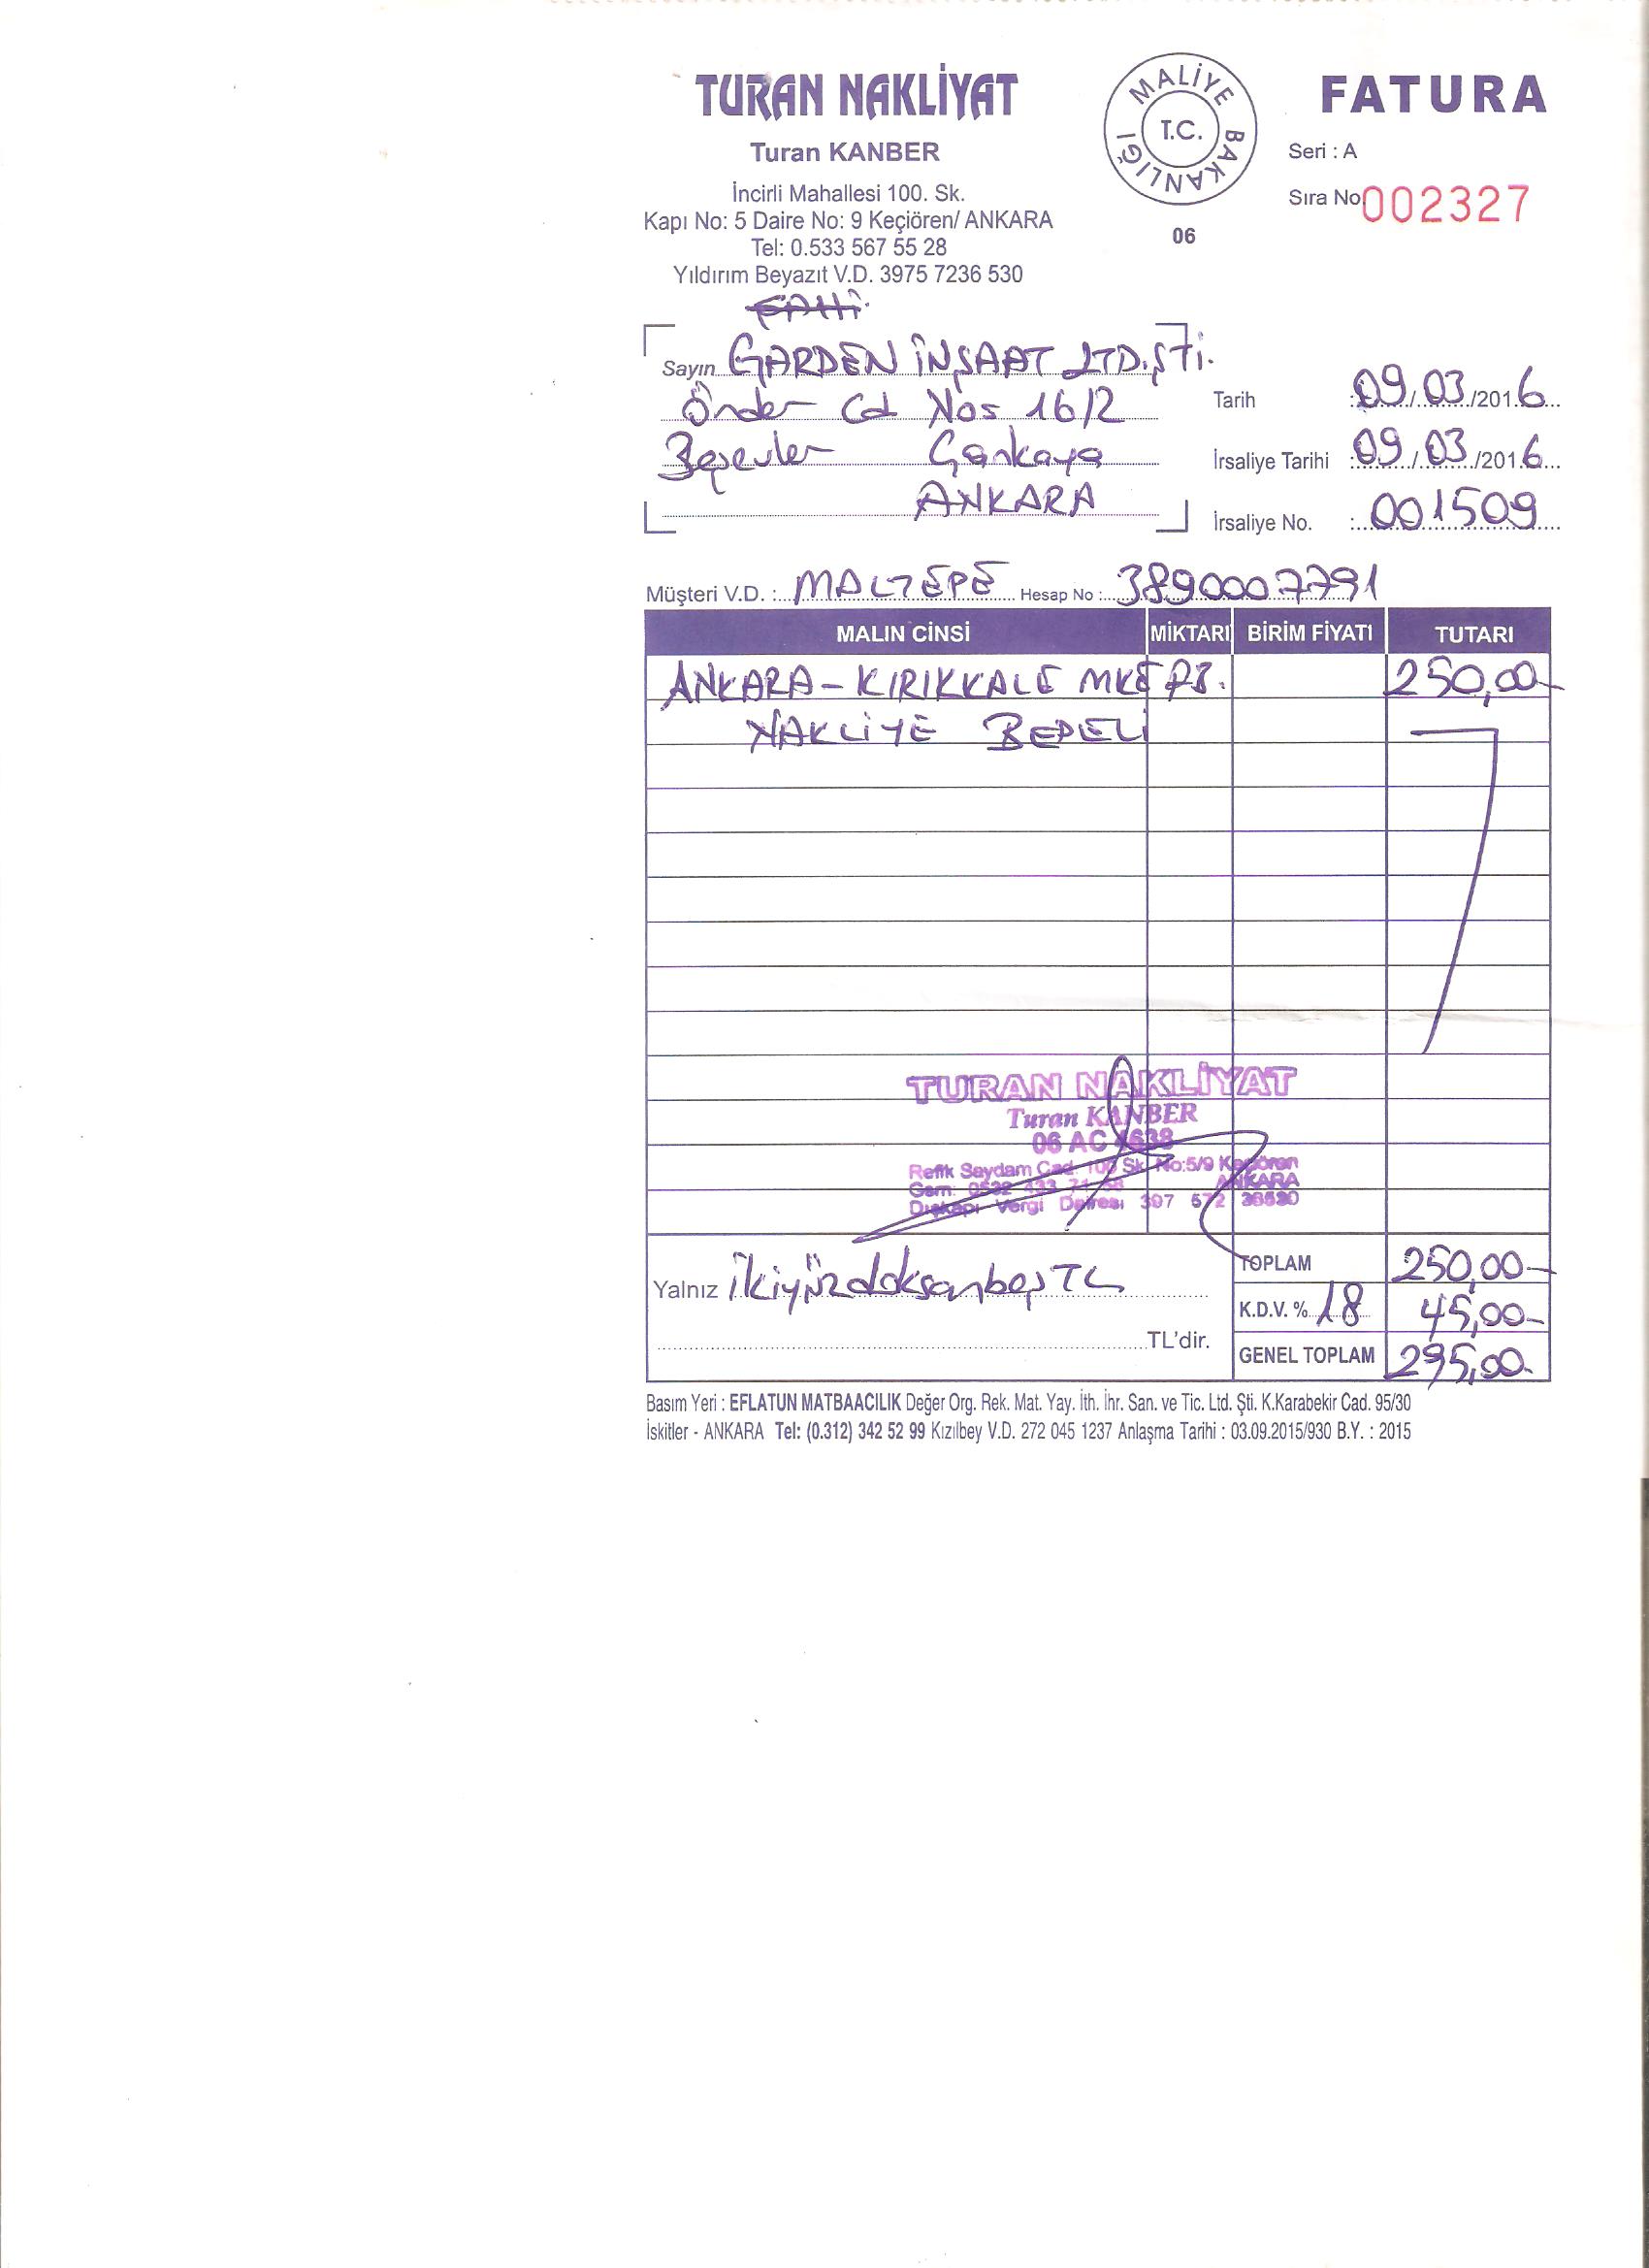 TURAN NAKLİYAT
Turan KANBER
İncirli Mahallesi 100. Sk.
Kapı No: 5 Daire No: 9 Keçiören/ ANKARA
Tel: 0.533 567 55 28
Yıldırım Beyazıt V.D. 3975 7236 530
T.C. MALİYE BAKANLIĞI
06
FATURA
Seri : A
Sıra No. 002327
Sayın GARDEN İNŞAAT LTD.ŞTİ.
Önder Cd No: 16/2
Beşevler Çankaya
ANKARA
Tarih : 09/03/2016
İrsaliye Tarihi : 09/03/2016
İrsaliye No. : 001509
Müşteri V.D. : MALTEPE Hesap No : 3890007791
MALIN CİNSİ MİKTARI BİRİM FİYATI TUTARI
ANKARA-KIRIKKALE MKE 250,00
NAKLİYE BEDELİ
TURAN NAKLİYAT
Turan KANBER
06 AC 4638
Refik Saydam Cad. 100 Sk. No:5/9 Keçiören
ANKARA
Gsm: 0532 433
Dışkapı Vergi Dairesi 397 572
Yalnız ikiyüzdoksanbeş TL
TL'dir.
TOPLAM 250,00
K.D.V. % 18 45,00
GENEL TOPLAM 295,00
Basım Yeri : EFLATUN MATBAACILIK Değer Org. Rek. Mat. Yay. İth. İhr. San. ve Tic. Ltd. Şti. K.Karabekir Cad. 95/30
İskitler - ANKARA Tel: (0.312) 342 52 99 Kızılbey V.D. 272 045 1237 Anlaşma Tarihi : 03.09.2015/930 B.Y. : 2015